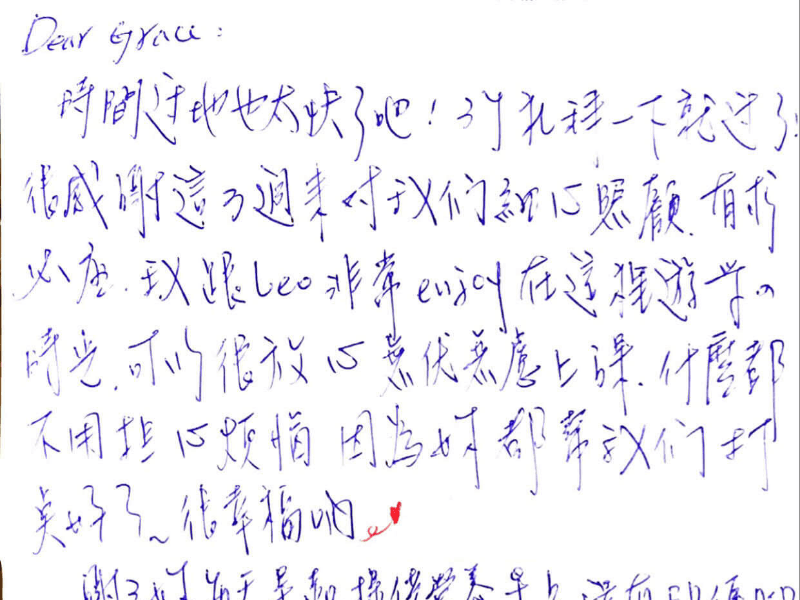 Dear Grace:
時間過地也太快了吧！3个礼拜一下就过了!
很感謝這3週来对於我们細心照顧.有求
必应.我跟Leo非常enjoy在這裡遊学の
時光.可以很放心無忧無慮上課.什麼都
不用担心煩惱 因為妳都幫我们打
奌好了~很幸福吶
謝謝妳每天早起 提供營养早点 還有